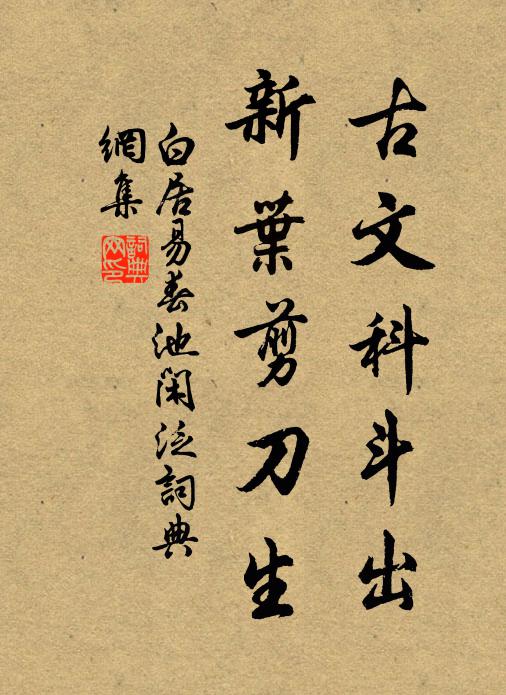 古文科斗出
新葉剪刀生
白居易春池閑泛詞典
網集
詞典
网印